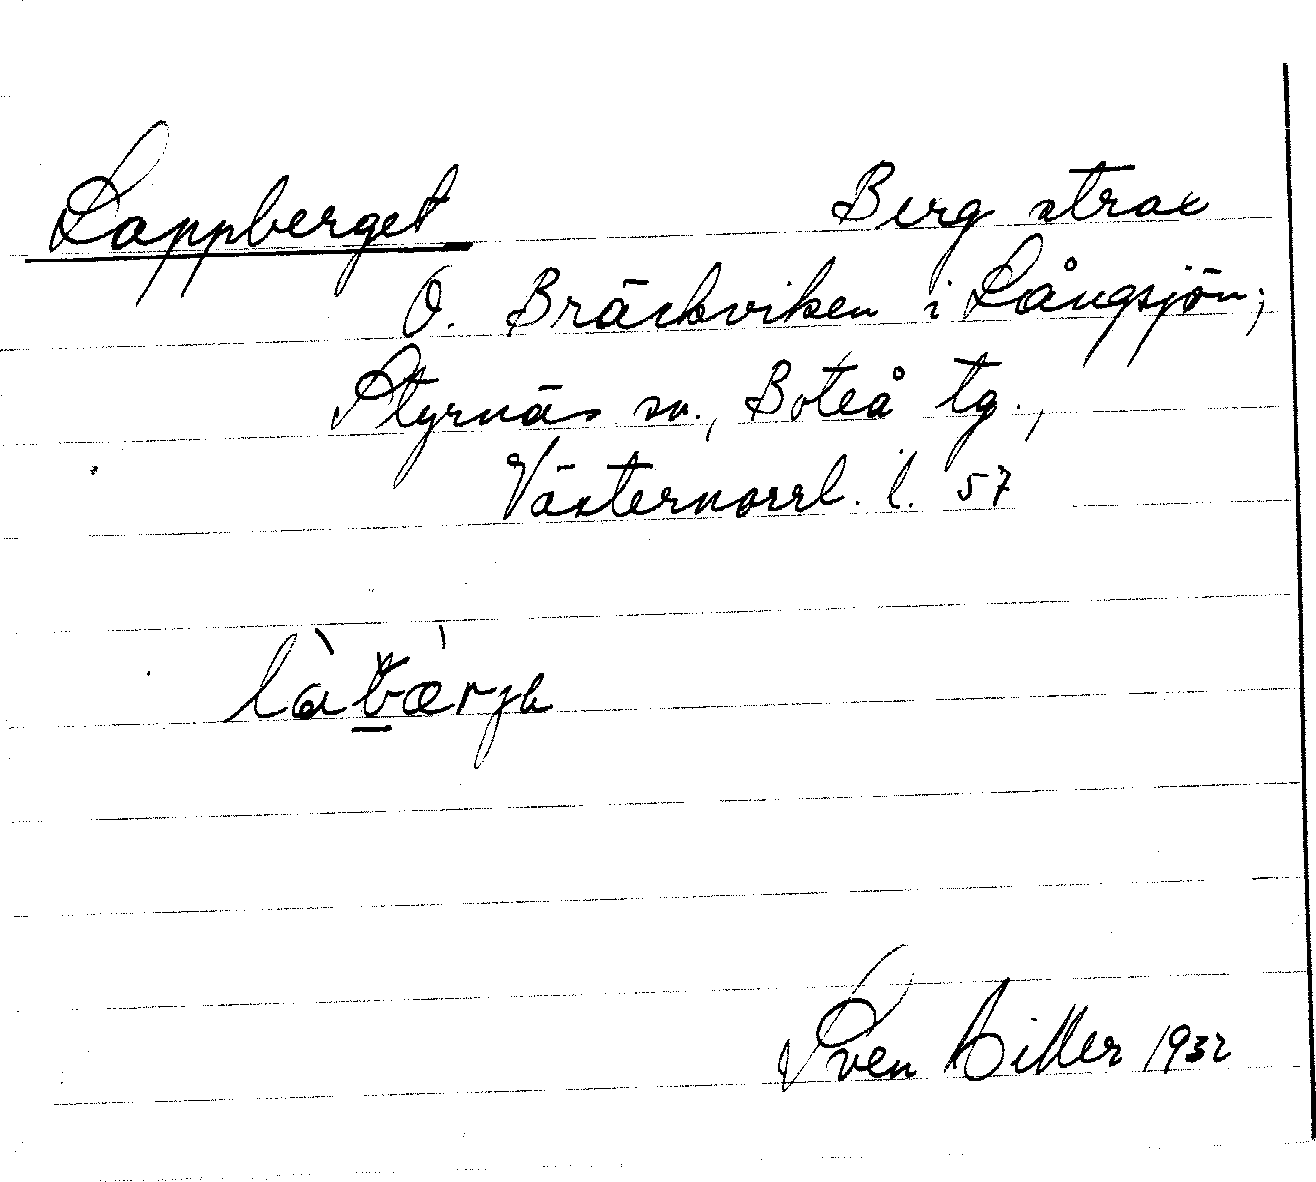 Lappberget Berg strax
O. Bräckviken i Långsjön;
Styrnäs sn., Boteå tg.,
Västernorrl. l. 57
Sven Hiller 1932